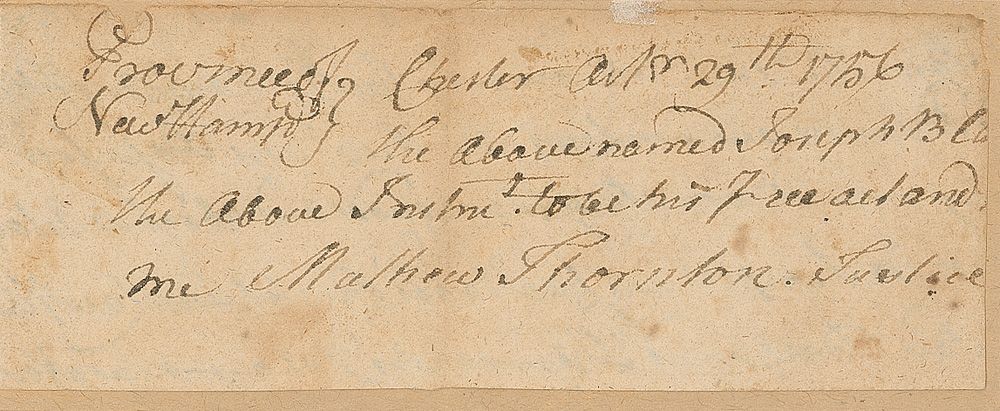 Province of } Chester Octr 29th 1756
New Hampr } the above named Joseph Bla
the Above Instrut. to be his Free act and
me Mathew Thornton. Justice